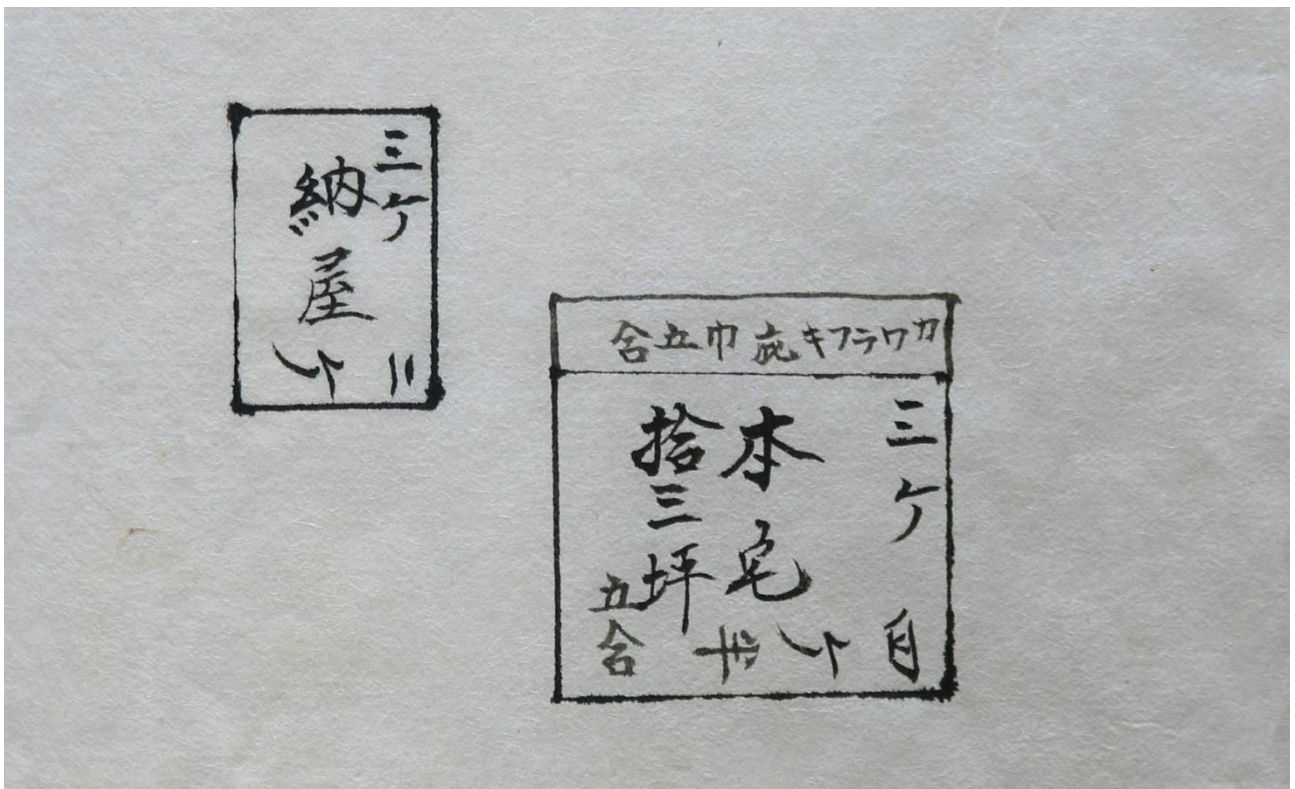 三ケ
納屋
二
カワラフキ庇巾五合
三ケ
本宅
拾三坪
五合